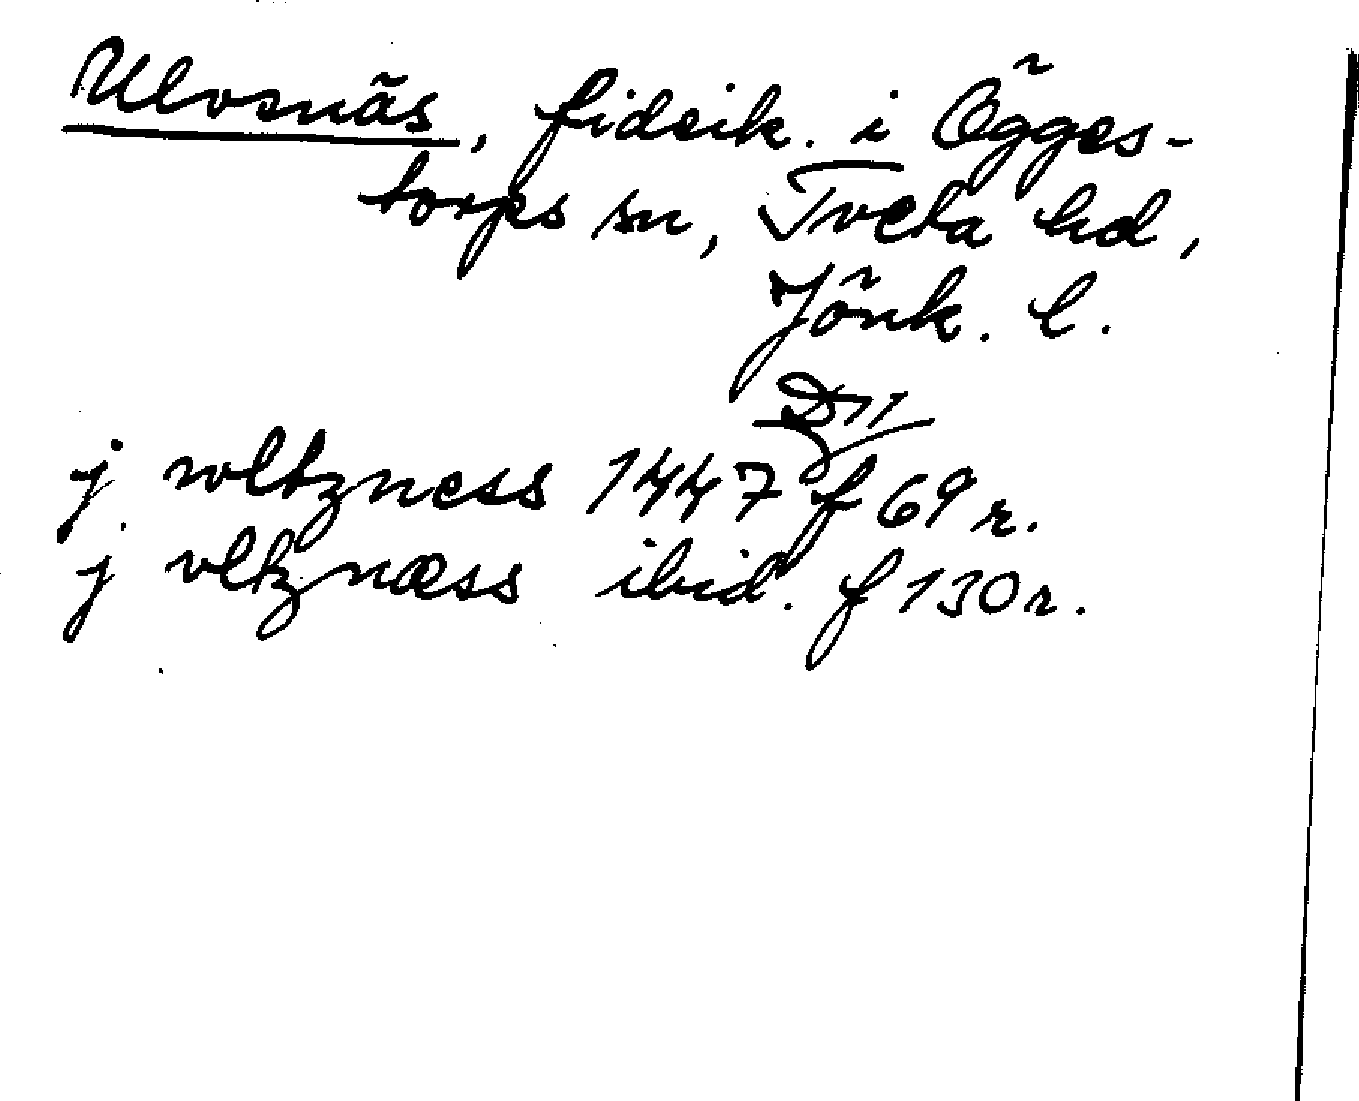 Ulvsnäs, fideik. i Ögges-
torps sn, Tveta hd,
Jönk. l.
D11
j wltzness 1447 f 69 r.
j vltznæss ibid. f 130 r.